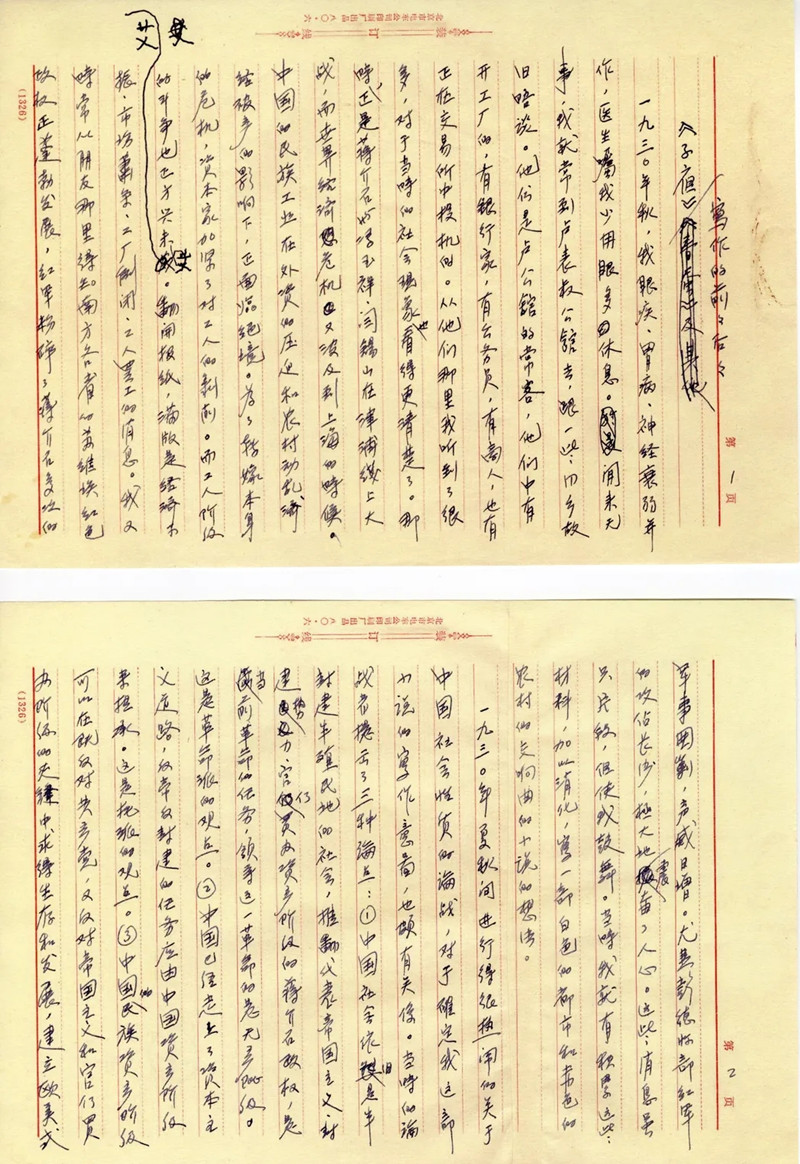 北京市电车公司印刷厂出品 八〇·六
装 订 线
第 1 页
写作的前々后々
《子夜》
一九三〇年秋，我眼疾、胃病、神经衰弱并
作，医生嘱我少用眼多休息。闲来无
事，我就常到卢表叔公馆去，跟一些同乡故
旧晤谈。他们是卢公馆的常客，他们中有
开工厂的，有银行家，有公务员，有商人，也有
正在交易所中投机的。从他们那里我听到了很
多，对于当时的社会现象也看得更清楚了。那
时，正是蒋介石与冯玉祥、阎锡山在津浦线上大
战，而世界经济危机又波及到上海的时候。
中国的民族工业在外资的压迫和农村动乱、经济
破产的影响下，正面临绝境。为了转嫁本身
的危机，资本家加紧了对工人的剥削。而工人阶级
的斗争也正方兴未艾。翻开报纸，满版是经济不
振、市场萧条、工厂倒闭、工人罢工的消息。我又
时常从朋友那里得知南方各省的苏维埃红色
政权正蓬勃发展，红军粉碎了蒋介石多次的
(1326)
北京市电车公司印刷厂出品 八〇·六
装 订 线
第 2 页
军事围剿，声威日增。尤其彭德怀部红军
的攻占长沙，极大地震奋了人心。这些消息虽
只片段，但使我鼓舞。当时我就有积累这些
材料，加以消化，写一部白色的都市和赤色的
农村的交响曲的小说的想法。
一九三〇年夏秋间进行得很热闹的关于
中国社会性质的论战，对于确定我这部
小说的写作意图，也颇有关系。当时的论
战者提出了三种论点：①中国社会依旧是半
封建半殖民地的社会，推翻代表帝国主义、封
建势力、官僚买办资产阶级的蒋介石政权，是
当前革命的任务，领导这一革命的是无产阶级。
这是革命派的观点。②中国已经走上了资本主
义道路，反帝反封建的任务应由中国资产阶级
来担承。这是托派的观点。③中国的民族资产阶级
可以在既反对共产党，又反对帝国主义和官僚买
办阶级的夹缝中求得生存和发展，建立欧美式
(1326)